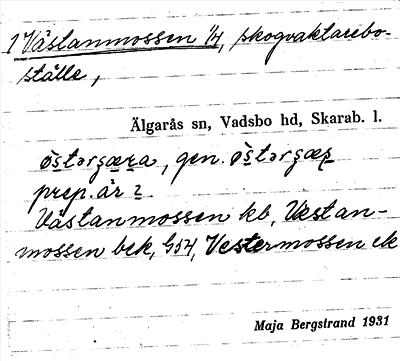 1 Västanmossen 1/4, skogvaktarebo-
ställe,
Älgarås sn, Vadsbo hd, Skarab. l.
östərgæra, gen. östərgæṛ
prep. är 2
Västanmossen kb, Vestan-
mossen bek, G54, Vestermossen ek
Maja Bergstrand 1931